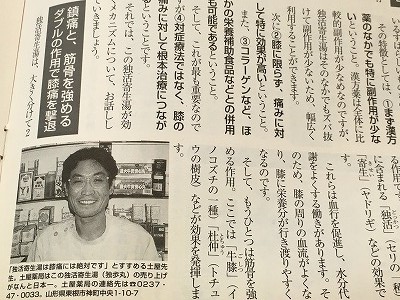 いるものです。
その特徴としては、①まず漢方
薬のなかでも特に副作用が少な
いということ。漢方薬は全体に比
較的副作用が少ないものですが、
独活寄生湯はそのなかでもズバ抜
けて副作用が少ないため、幅広く
利用することができます。
次に②膝に限らず、痛みに対
して特に効果が高いということ。
また、③コラーゲンなど、ほ
かの栄養補助食品などとの併用
も可能であるということ。
そして、これが最も重要なので
すが④対症療法ではなく、膝の
痛みに対して根本治療につなが
るということです。
それでは、この独活寄生湯が効
くメカニズムについて、お話しし
ていきましょう。
鎮痛と、筋骨を強める
ダブルの作用で膝痛を撃退
独活寄生湯は、大きく分けて2
に含まれる「独活」（セリの一種
「寄生」（ヤドリギ）などの効果で
す。
これらは血行を促進し、水分代
謝をよくする働きがあります。そ
のため、膝の周りの血流がよくな
り、膝に栄養分が行き渡りやすく
なるのです。
そして、もうひとつは筋骨を強
める作用。ここでは「牛膝」（イ
ノコズチの一種）「杜仲」（トチュ
ウの樹皮）などが効果を発揮しま
「独活寄生湯は膝痛には絶対です」とすすめる土屋先
生。土屋薬局はこの独活寄生湯（独歩丸）の売り上げ
がなんと日本一。土屋薬局の連絡先は☎0237-
47-0033。山形県東根市神町中央1-10-7